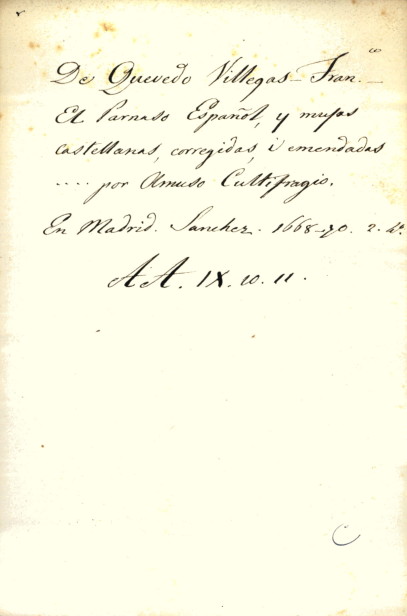 De Quevedo Villegas - Fran.co -
El Parnaso Español, y musas
castellanas, corregidas, i emendadas
.... por Amuso Cultifragio.
En Madrid. Sanchez. 1668-70. 2. 4º.
AA. IX. 10. 11.
C